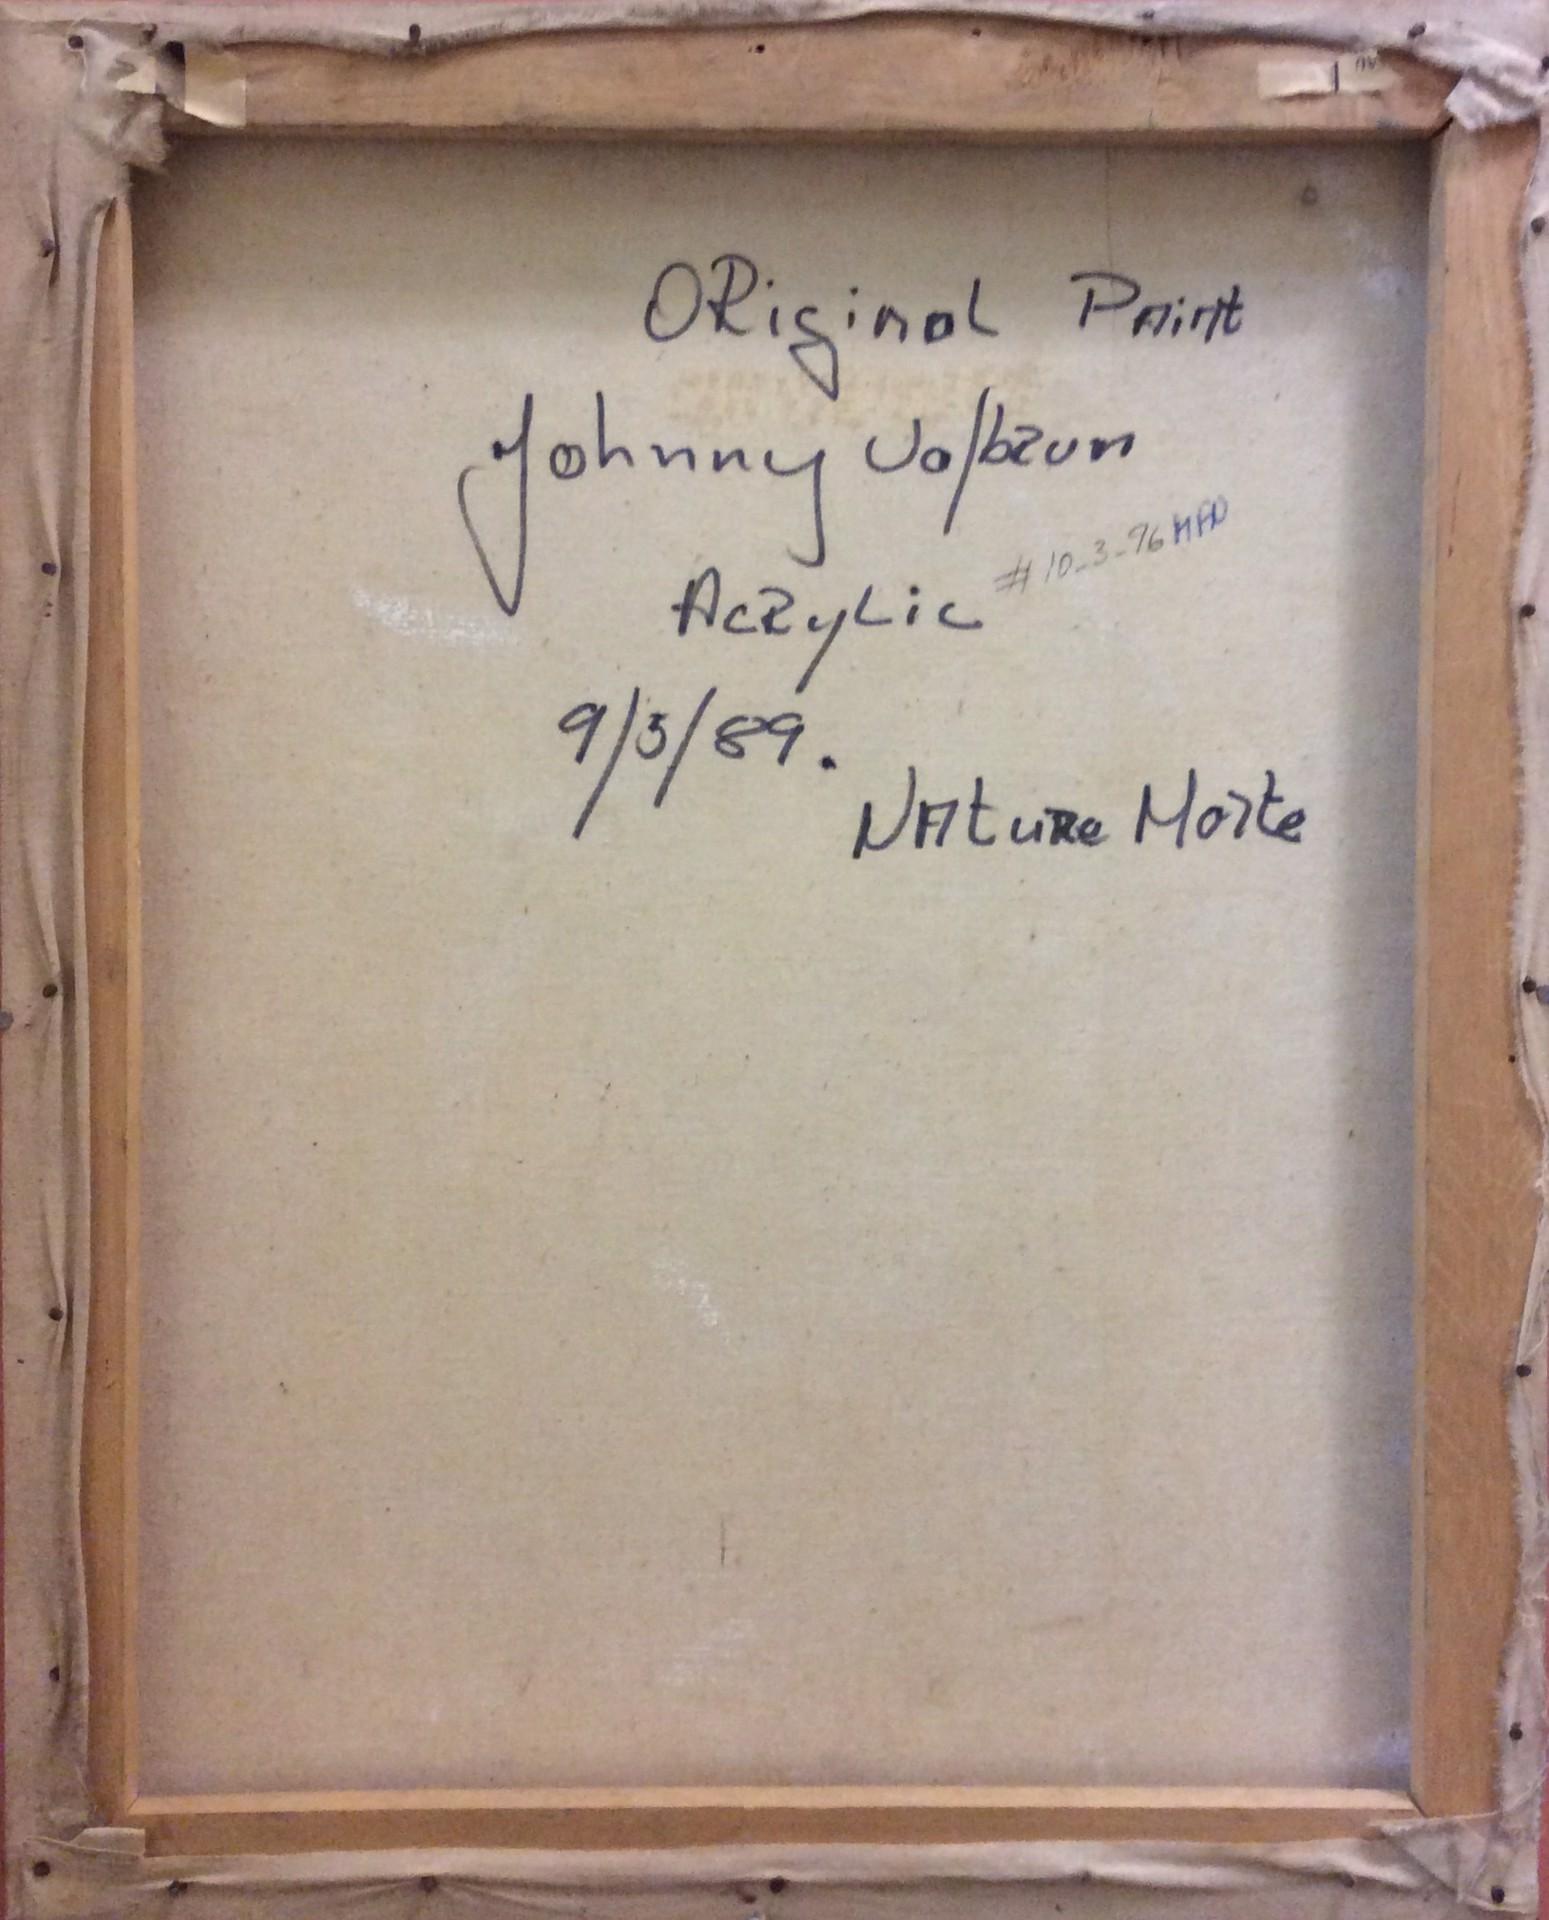 ORiginal Paint
Johnny Volbrun
Acrylic
# 10_3_96 MFN
9/3/89.
NAtuRe Morte